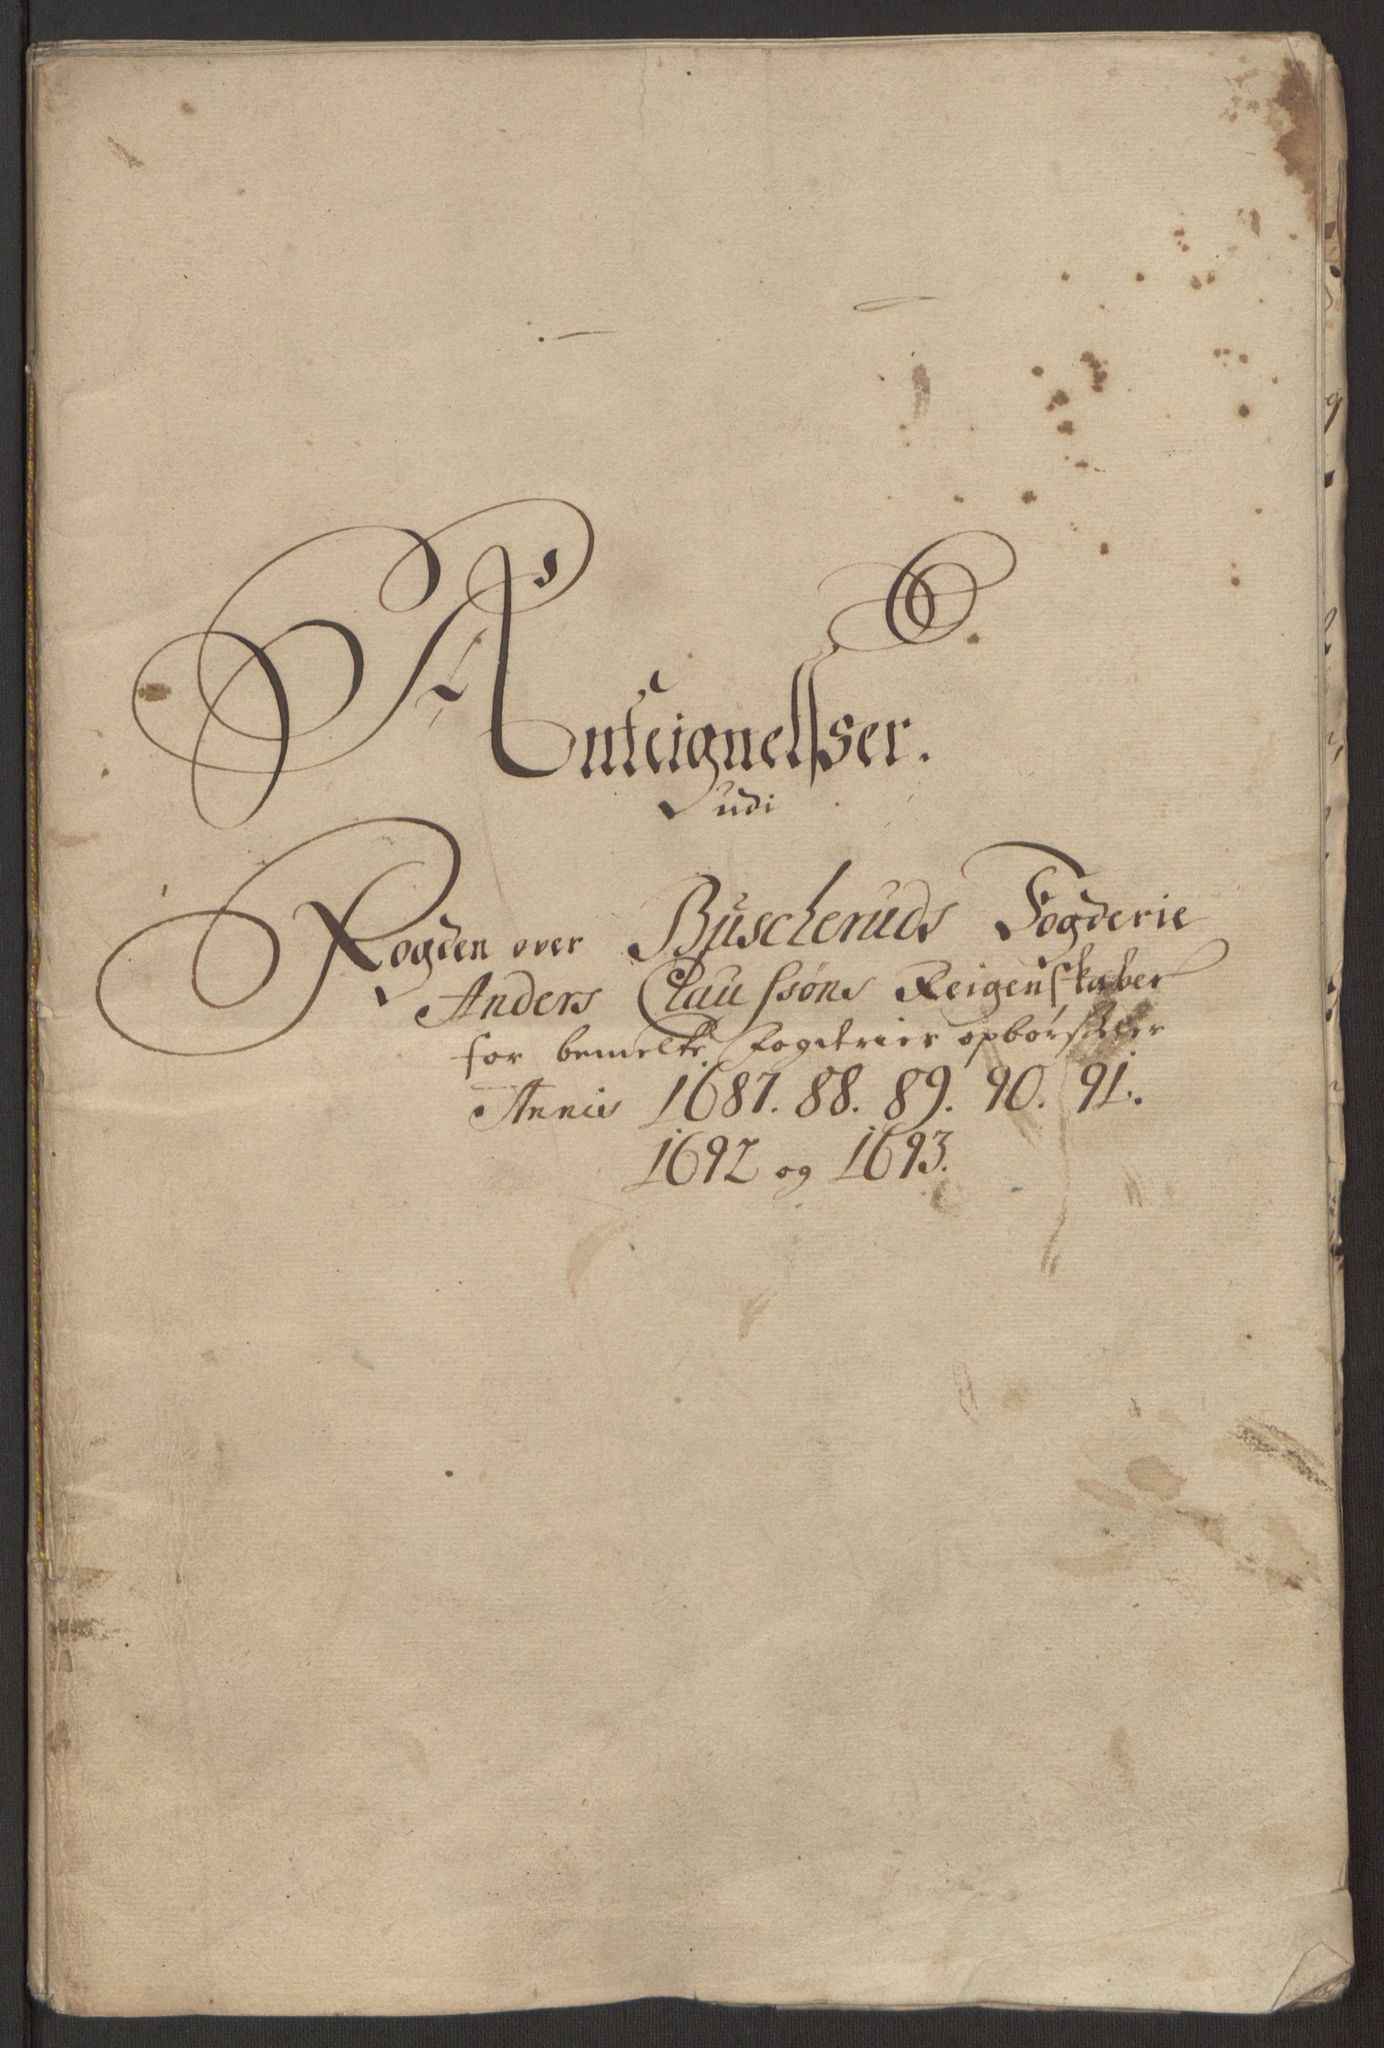 Anteignelsser.
udi
Fogden over Buscheruds Fogderie
Anders Claussøns Reigenskaber
for bemelte Fogderies opbørseler
Annis 1687. 88. 89. 90. 91.
1692 og 1693.